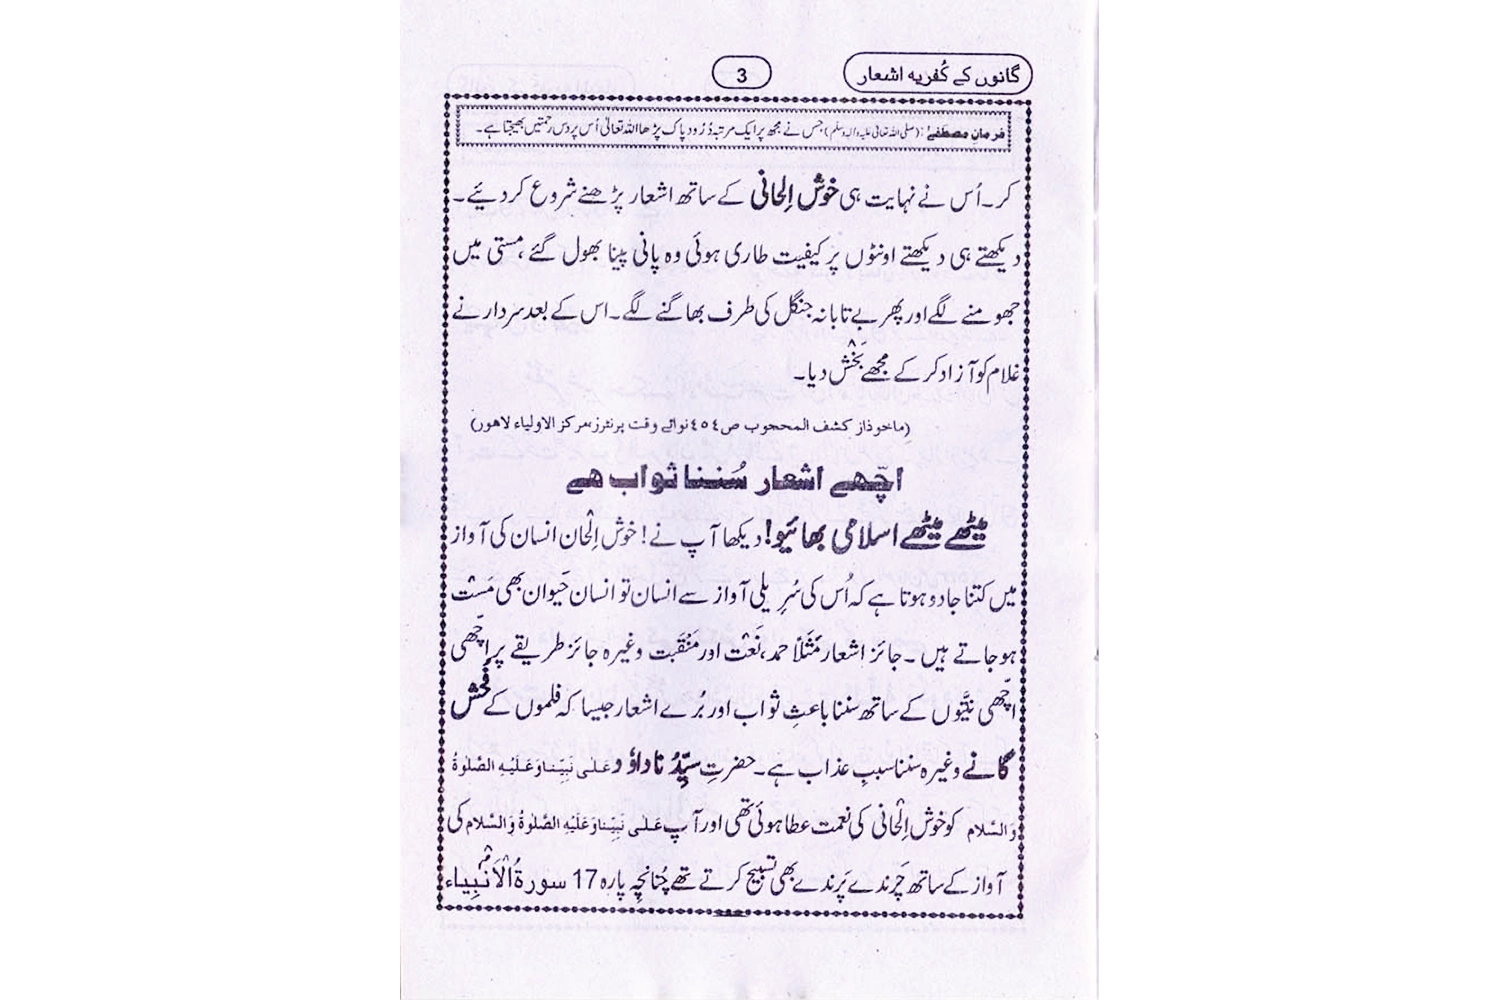 گانوں کے کُفریہ اشعار
3
فرمانِ مصطفےٰ: (صلی اللہ تعالیٰ علیہ والہ وسلم) جس نے مجھ پر ایک مرتبہ دُرُود پاک پڑھا اللہ تعالیٰ اُس پر دس رحمتیں بھیجتا ہے۔
کر۔ اُس نے نہایت ہی خوش اِلحانی کے ساتھ اشعار پڑھنے شروع کر دیئے۔
دیکھتے ہی دیکھتے اونٹوں پر کیفیت طاری ہوئی وہ پانی پینا بھول گئے، مستی میں
جھومنے لگے اور پھر بے تابانہ جنگل کی طرف بھاگنے لگے۔ اس کے بعد سردار نے
غلام کو آزاد کر کے مجھے بَخْش دیا۔
(ماخوذ از کشف المحجوب ص٤٥٤ نوائے وقت پرنٹرز، مرکز الاولیاء لاھور)
اچّھے اشعار سُننا ثواب ھے
میٹھے میٹھے اسلامی بھائیو! دیکھا آپ نے! خوش اِلْحان انسان کی آواز
میں کتنا جادو ہوتا ہے کہ اُس کی سُرِیلی آواز سے انسان تو انسان حَیوان بھی مَسْت
ہو جاتے ہیں ۔ جائز اشعار مَثَلاً حمد، نَعْت اور مَنْقَبت وغیرہ جائز طریقے پر اچّھی
اچّھی نیّتوں کے ساتھ سننا باعثِ ثواب اور بُرے اشعار جیسا کہ فلموں کے فُحْش
گانے وغیرہ سننا سببِ عذاب ہے۔ حضرتِ سیِّدُنا داوٗد عَلٰی نَبِیِّنا وَعَلَیْہِ الصَّلٰوۃُ
وَالسَّلام کو خوش اِلْحانی کی نعمت عطا ہوئی تھی اور آپ عَلٰی نَبِیِّنا وَعَلَیْہِ الصَّلٰوۃُ وَالسَّلام کی
آواز کے ساتھ چَرندے پَرندے بھی تسبیح کرتے تھے چُنانچِہ پارہ 17 سورۃُ الْاَنْبِیاء